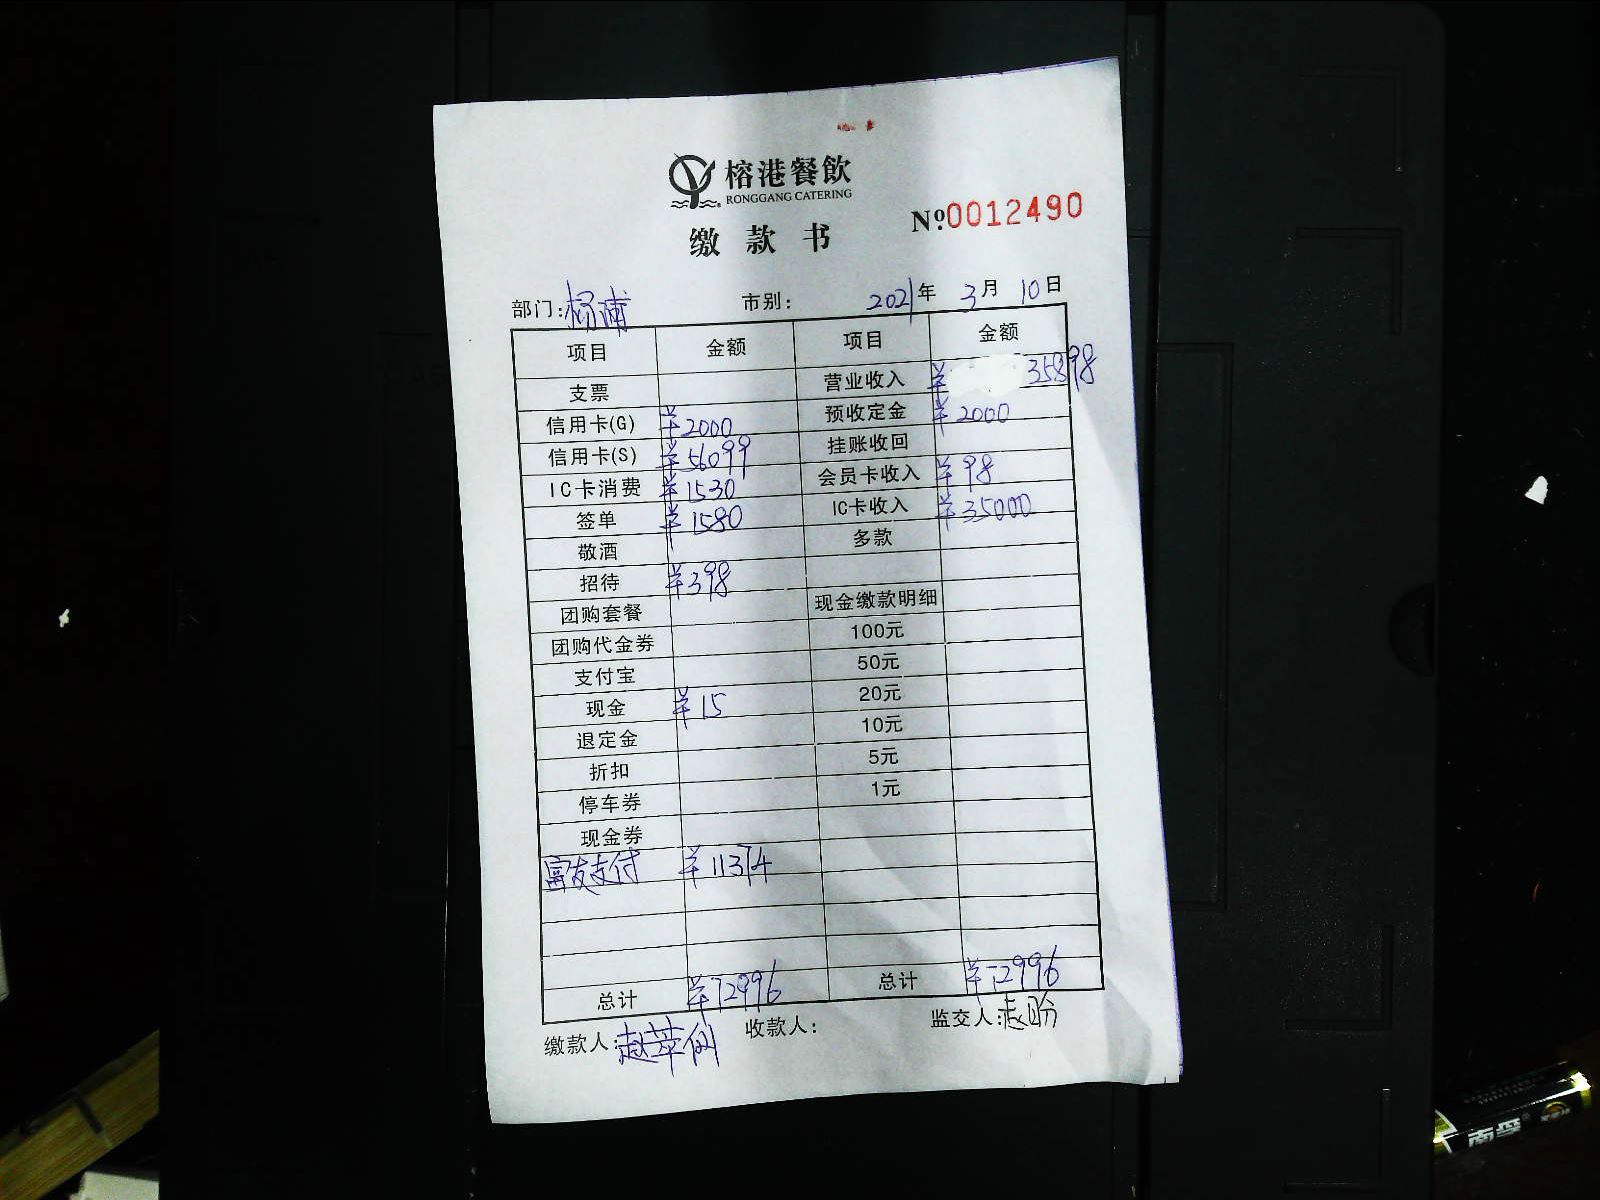 榕港餐飲
RONGGANG CATERING
缴款书
№.0012490
部门:杨浦 市别: 2021年 3月 10日
项目 金额 项目 金额
支票 营业收入 ¥35898
信用卡(G) ¥2000 预收定金 ¥2000
信用卡(S) ¥56099 挂账收回
IC卡消费 ¥1530 会员卡收入 ¥98
签单 ¥1580 IC卡收入 ¥35000
敬酒 多款
招待 ¥398
团购套餐 现金缴款明细
团购代金券 100元
支付宝 50元
现金 ¥15 20元
退定金 10元
折扣 5元
停车券 1元
现金券
富友支付 ¥11374
总计 ¥72996 总计 ¥72996
缴款人: 收款人: 监交人:
南孚